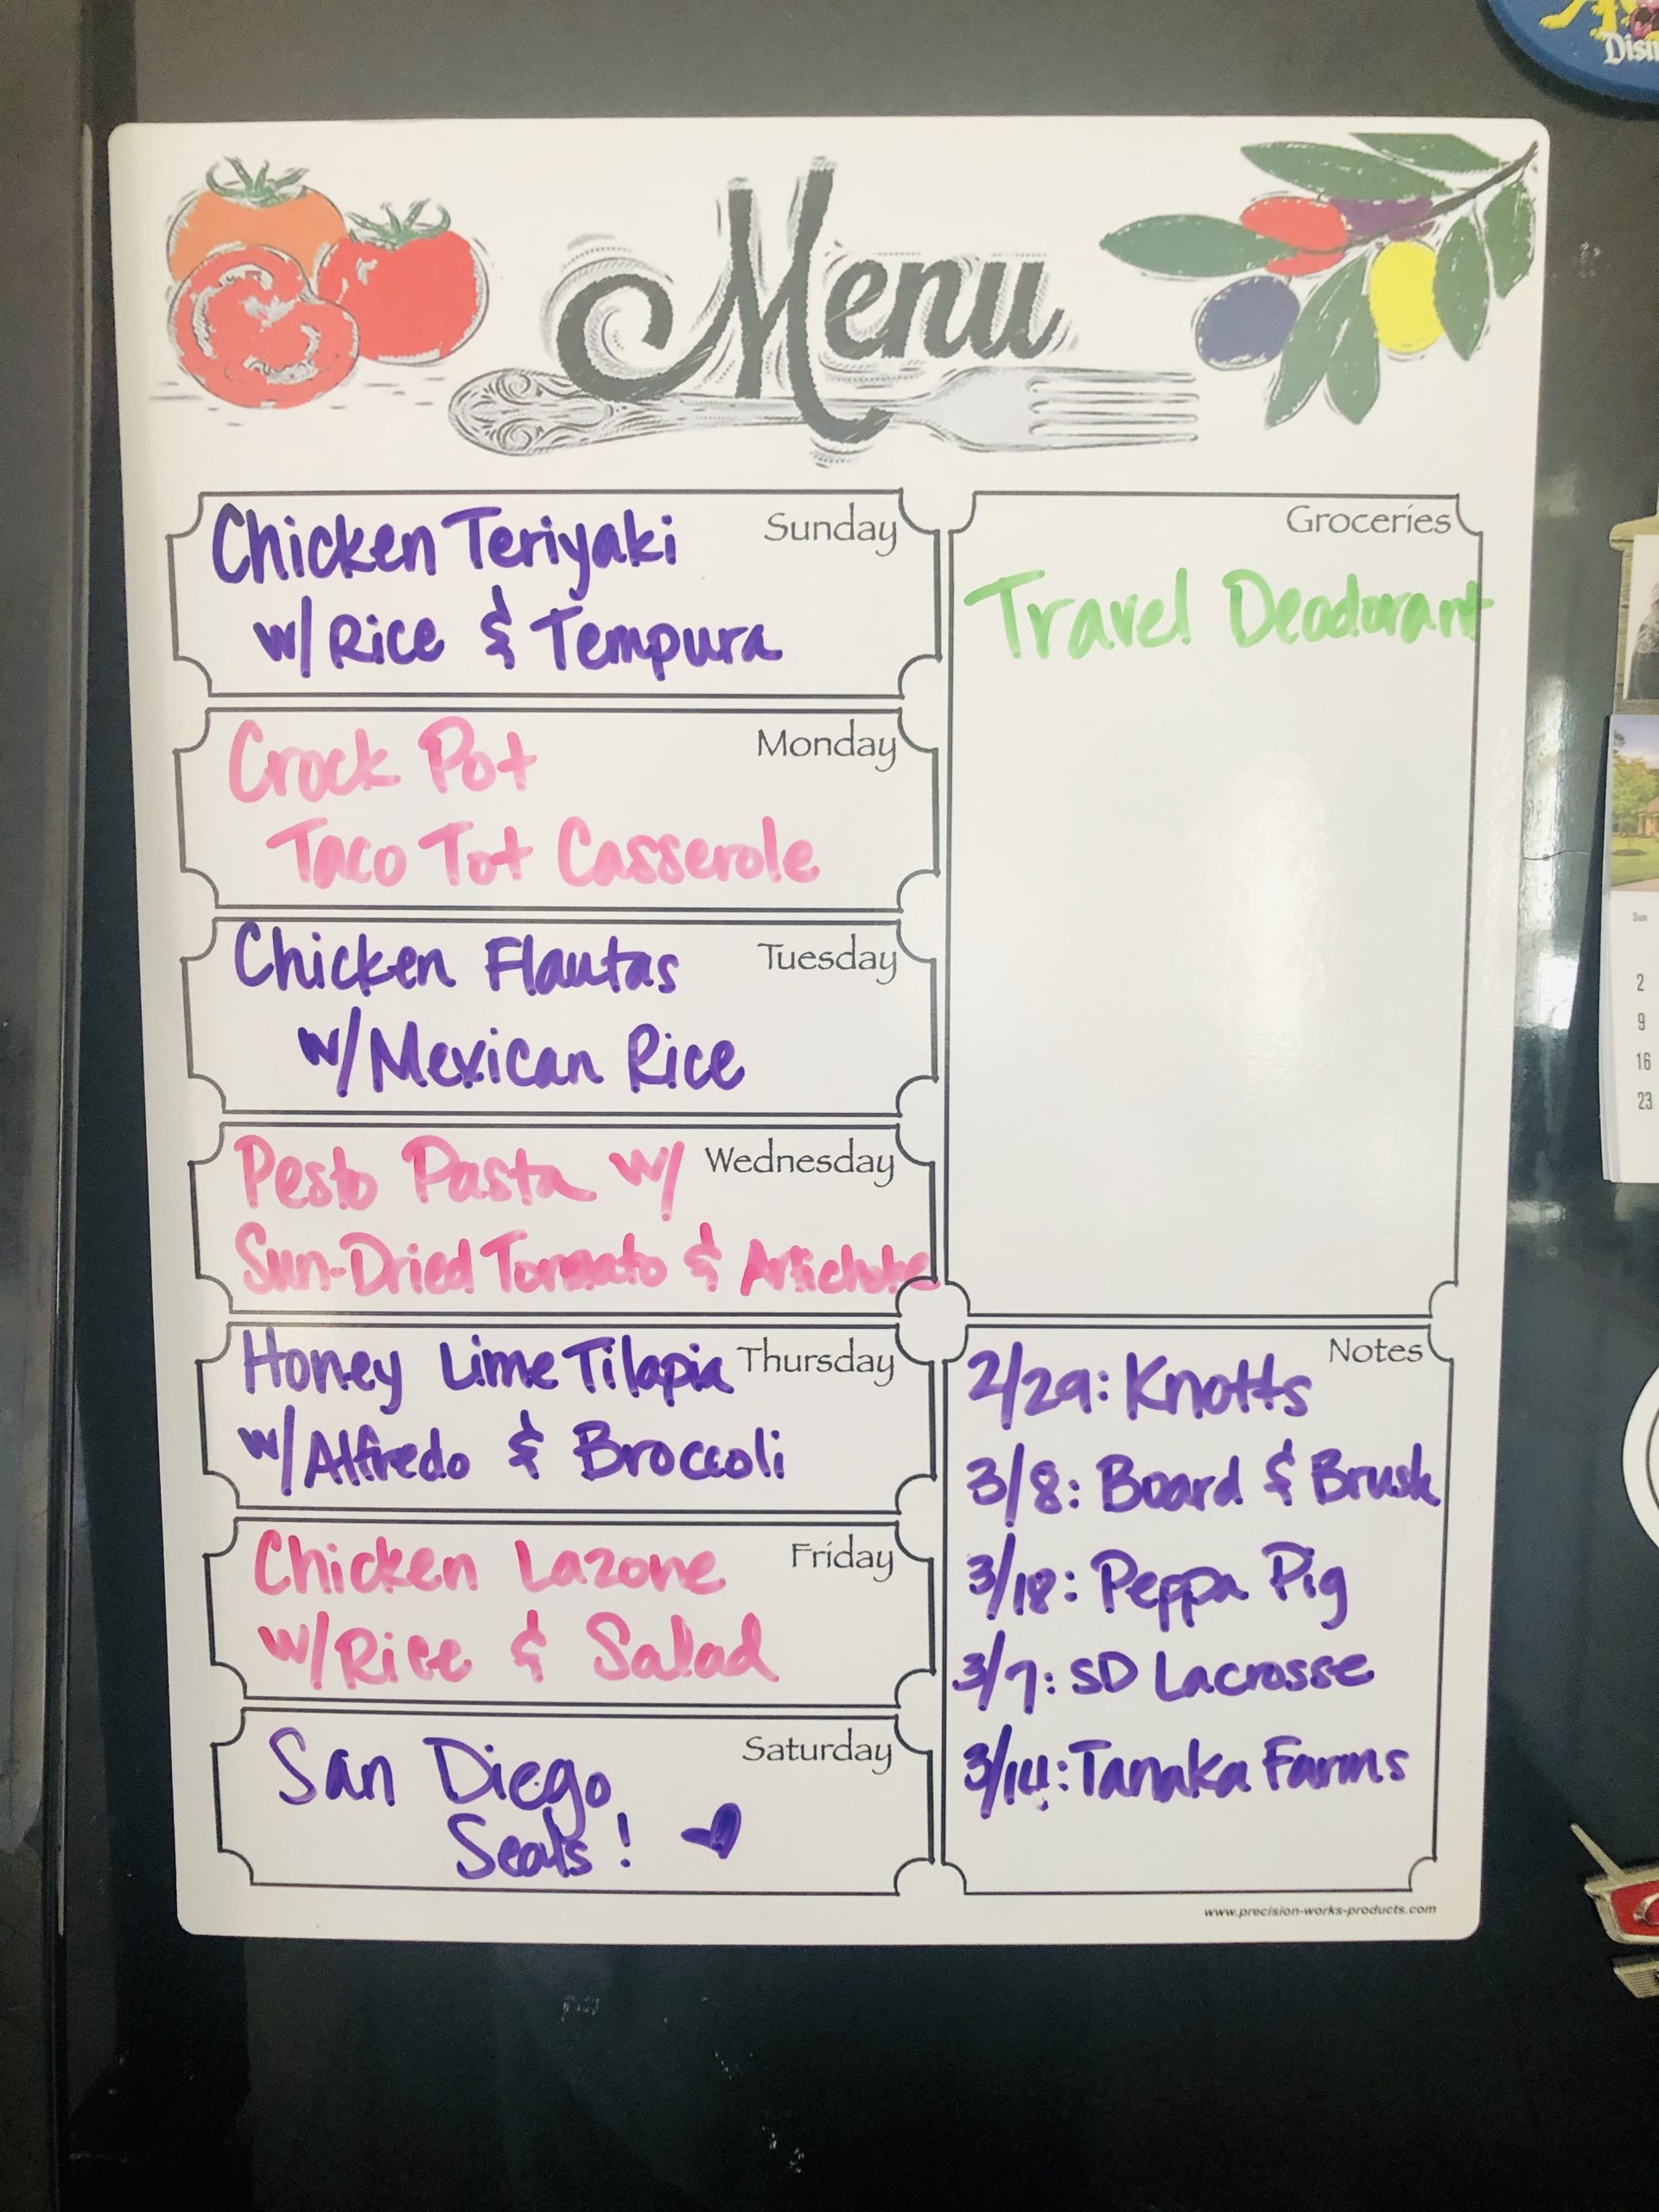 Disn
Menu
Sunday
Chicken Teriyaki
w/ Rice & Tempura
Monday
Crock Pot
Taco Tot Casserole
Tuesday
Chicken Flautas
w/ Mexican Rice
Wednesday
Pesto Pasta w/
Sun-Dried Tomato & Artichoke
Thursday
Honey Lime Tilapia
w/ Alfredo & Broccoli
Friday
Chicken Lazone
w/ Rice & Salad
Saturday
San Diego
Seals!
Groceries
Travel Deodorant
Notes
2/29: Knotts
3/8: Board & Brush
3/18: Peppa Pig
3/7: SD Lacrosse
3/14: Tanaka Farms
www.precision-works-products.com
Sun
2
9
16
23